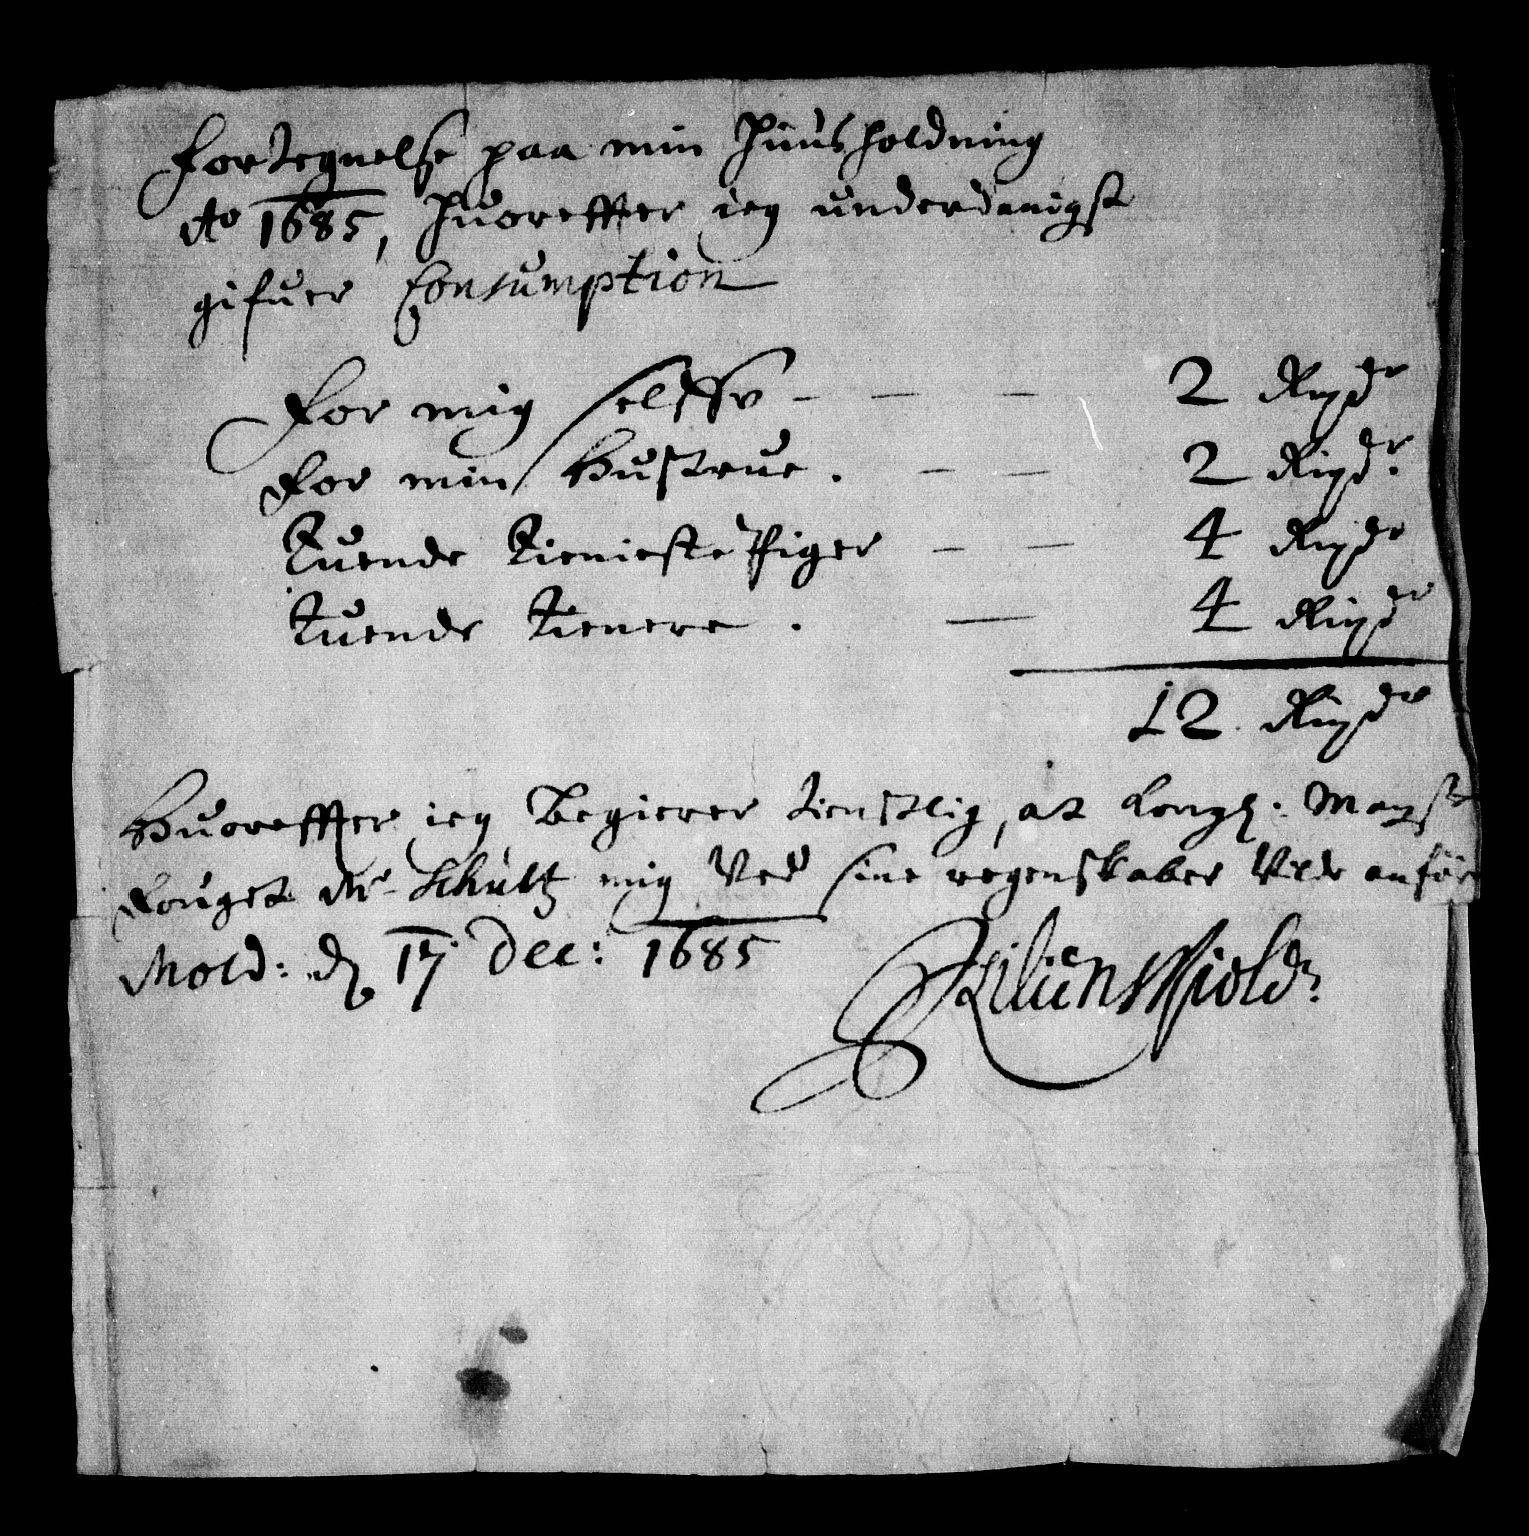 Fortegnelse paa min Huus holdning
Ao 1685, Huoreffter ieg underdanigst
gifuer Consumption
For mig selffv - - - 2 Rixdr
For min Hustrue . - - 2 Rixdr.
Tuende Tieniste Piger - - 4 Rixdr
Tuende Tienere . - 4 Rixdr
12 Rixdr
Huoreffter ieg Begierer tienstlig, at Kongl: Mayst
Fouget Mr. Schultz mig Ved sine regenskaber Vilde anföre
Mold: d. 17 Dec: 1685